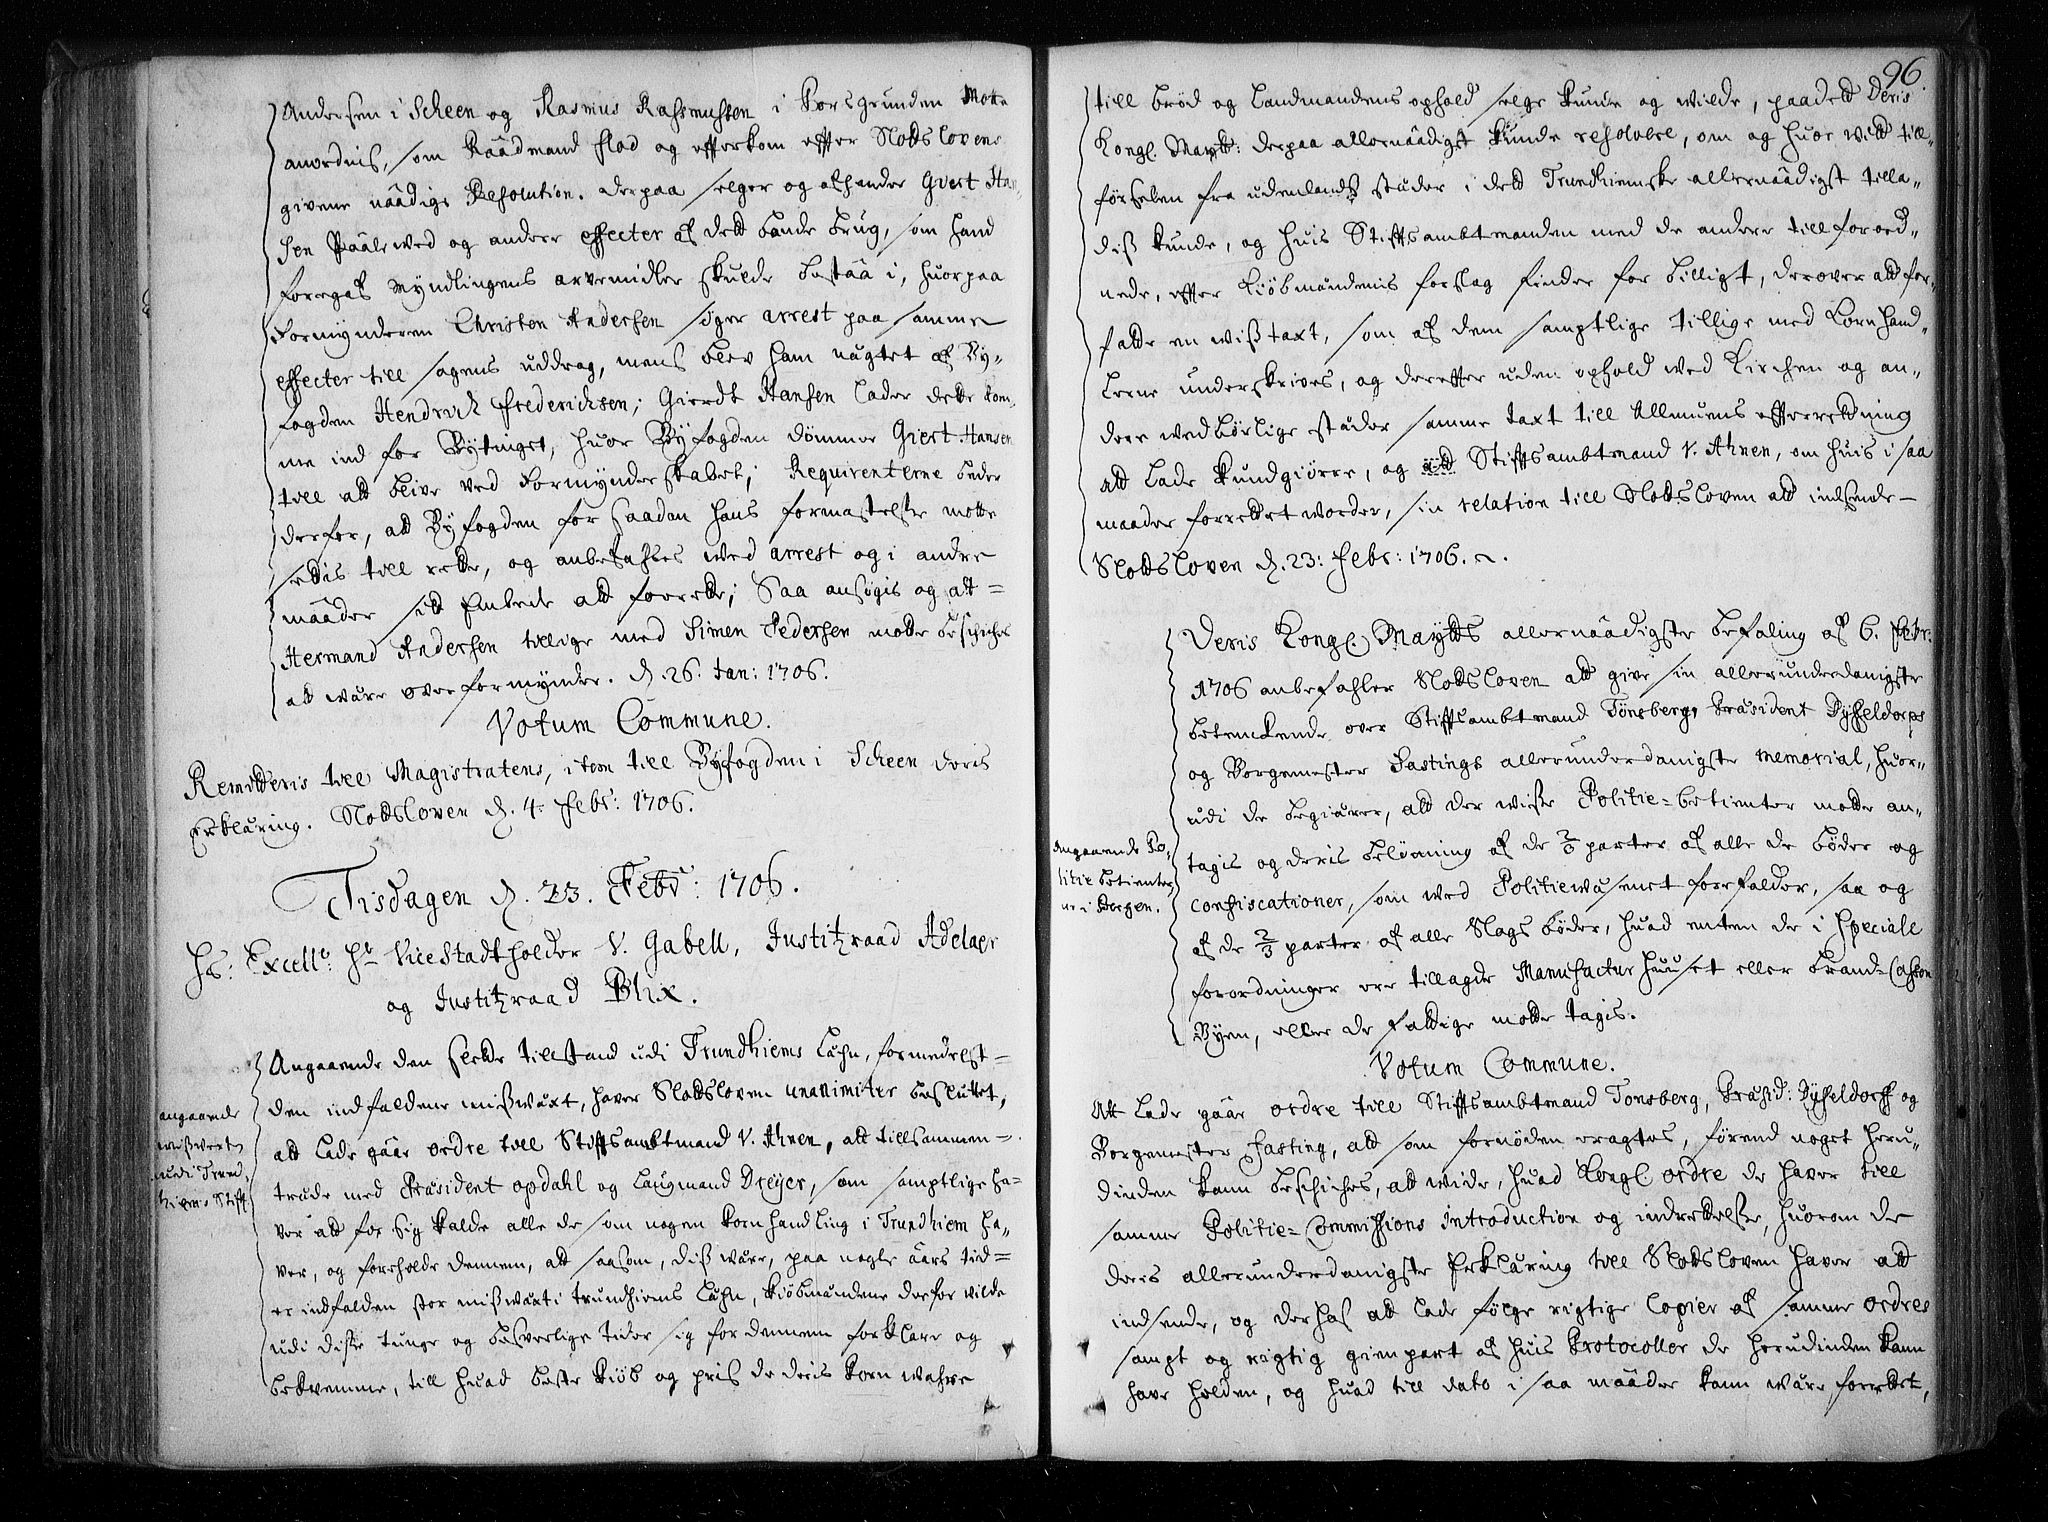 Andersen i Scheen og Rasmus Rassmussen i Porsgrunden motte
anordnis, som Raadmand Flod og efterkom efter Slodslovens
givene naadige Resolution. Derpaa selger og afhender Giert Han-
sen Paaleved og andre effecter af dett Lande brug, som hand
foregaf Myndlingens arfvemidler skulde bestaa i, huorpaa
Formynderen Christen Andersen søger arrest paa samme
effecter till sagens uddrag, mens blev ham nægtet af By-
fogden Hendrich Frederichsen; Gierdt Hansen lader dette kom-
me ind for Bytinget, huor Byfogden dømmer Giert Hansen
till att blive ved Formynderskabet; Requirenterne beder
derfor, att Byfogden for saadan hans formastelse motte
settis till rette, og anbefahles ved arrest og i andre
maader sit Embede att forrette; Saa ansøgis og att
Hermand Andersen tillige med Simen Pedersen motte beschiches
att være overformynder. d. 26. Jan: 1706.
Votum Commune.
Remitteris till Magistratens, item till Byfogden i Scheen deris
Erklæring. Slodsloven d. 4. Febr: 1706.
Tisdagen d. 23. Febr: 1706.
Hs: Excell: Hr Vice Stadtholder V. Gabell, Justitzraad Adelaer
og Justitzraad Blix.
angaaende
misvexten
udi Trund-
hiems Stift
Angaaende den slette tillstand udi Trundhiems Læhn, formedelst
den indfaldene misvæxt, haver Slodsloven unanimiter besluttet,
att lade gaar ordre till Stiftsambtmand V. Ahnen, att tillsammen-
træde med Præsident Opdahl og Laugmand Dreyer, som samptlige ha-
ver att for sig kalde alle de som nogen kornhandling i Trundhiem ha-
ver, og foreholde dennem, att saasom, dis være, paa nogle aars tid
er indfalden stor misvæxt i Trundhiems Læhn, kiøbmændene derfor vilde
udi disse tunge og besverlige tider sig for dennem forklare og
beqvemme, till huad beste kiøb og pris de deris korn wahre
96.
till brød og Landmandens ophold selge kunde og vilde, paadett Deris
Kongl. Maytt: derpaa allernaadigst kunde resolvere, om og huor vidt till-
førselen fra udenlands stæder i dett Trundhiemske allernaadigst tilla-
dis kunde, og huis Stiftsambtmanden med de andre tillforord-
nede, efter Kiøbmændenis forslag finder for billigt, derover att for-
fatte en wis taxt, som af dem samptlige tillige med Kornhand-
lerne underskrives, og derefter uden ophold ved Kirchen og an-
dere vedbørlige stæder samme taxt till Allmuens efterretning
att lade kundgiøre, og att Stiftsambtmand V. Ahnen, om huis i saa
maader forrettet worder, sin relation till Slodsloven att indsende
Slodsloven d. 23: Febr: 1706.
Deris Kongl. Maytts allernaadigste befaling af 6. Febr:
1706 anbefahler Slodsloven att give sin allerunderdanigste
betenkende over Stiftsambtmand Tønsberg, Præsident Dysseldorps
og Borgemester Fastings allerunderdanigste memorial, huor-
udi de begiærer, att der wisse Politie-betienter motte an-
tagis og deris belønning af de 2/3 parter af alle de bøder og
confiscationer, som ved Politievæsenet forefalder, saa og
af de 2/3 parter af alle slags bøder, huad enten de i Speciale
forordninger ere tillagde Manufactur Huuset eller Brand-Cassen
Byen, eller de fattige motte tagis.
Angaaende Po-
litie betienter-
ne i Bergen.
Votum Commune.
Att lade gaar ordre till Stiftsambtmand Tonsberg, Præsid: Dysseldorff og
Borgemester Fasting, att som fornøden eragtes, førend noget heru-
dinden kann beschiches, att wide, huad Kongl. ordre de haver till
samme Politie-Commissions introduction og indrettelse, huorom de
deres allerunderdanigste Erklæring till Slodsloven haver att
indsende, og derhos att lade følge rigtige Copier af samme ordres
sampt og rigtig gienpart af huis Protocoller de herudinden kann
have holden, og huad till dato i saa maader kann være forrettet,